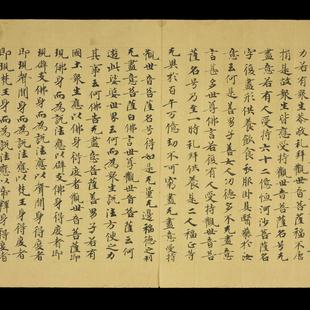 力若有衆生恭敬礼拜觀世音菩薩福不唐
捐是故衆生皆應受持觀世音菩薩名号无
盡意若有人受持六十二億恒河沙菩薩名
字復盡形供養飲食衣服卧具醫藥於汝
意云何是善男子善女人功德多不无盡意
言甚多世尊佛言若復有人受持觀世音菩
薩名号乃至一時礼拜供養是二人福正等
无異於百千万億劫不可窮盡无盡意受持
觀世音菩薩名号得如是无量无邊福德之利
无盡意菩薩白佛言世尊觀世音菩薩云何
遊此娑婆世界云何而為衆生說法方便之力
其事云何佛告无盡意菩薩善男子若有
國土衆生應以佛身得度者觀世音菩薩即
現佛身而為說法應以辟支佛身得度者即
現辟支佛身而為說法應以聲聞身得度者
即現聲聞身而為說法應以梵王身得度者
即現梵王身而為說法應以帝釋身得度者